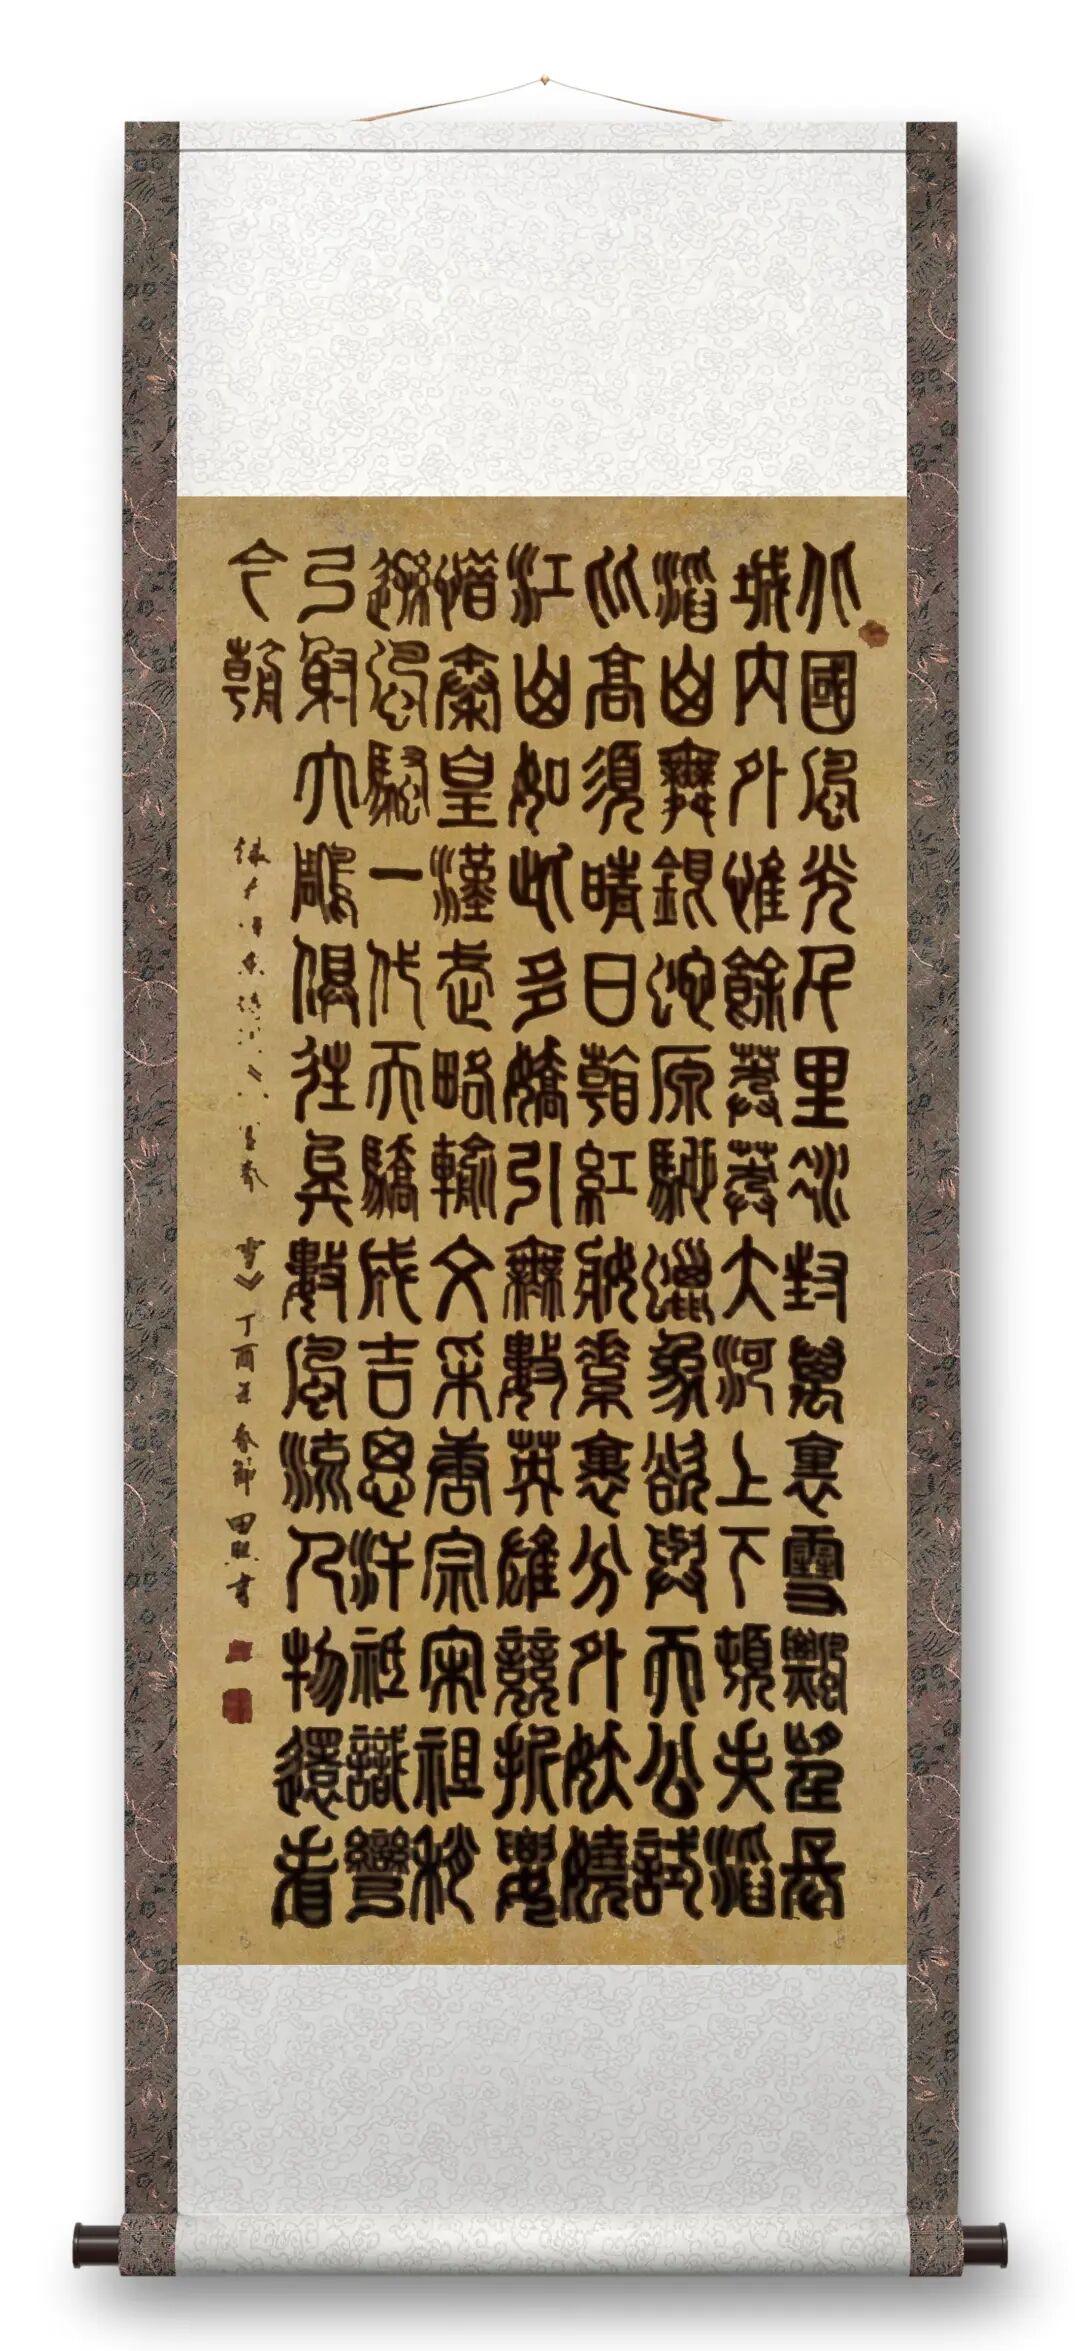 北國風光千里冰封萬裏雪飄望長
城內外惟餘莽莽大河上下頓失滔
滔山舞銀蛇原馳蠟象欲與天公試
比高須晴日看紅妝素裹分外妖嬈
江山如此多嬌引無數英雄競折腰
惜秦皇漢武略輸文采唐宗宋祖稍
遜風騷一代天驕成吉思汗祇識彎
弓射大雕俱往矣數風流人物還看
今朝
雪》丁酉年春節田